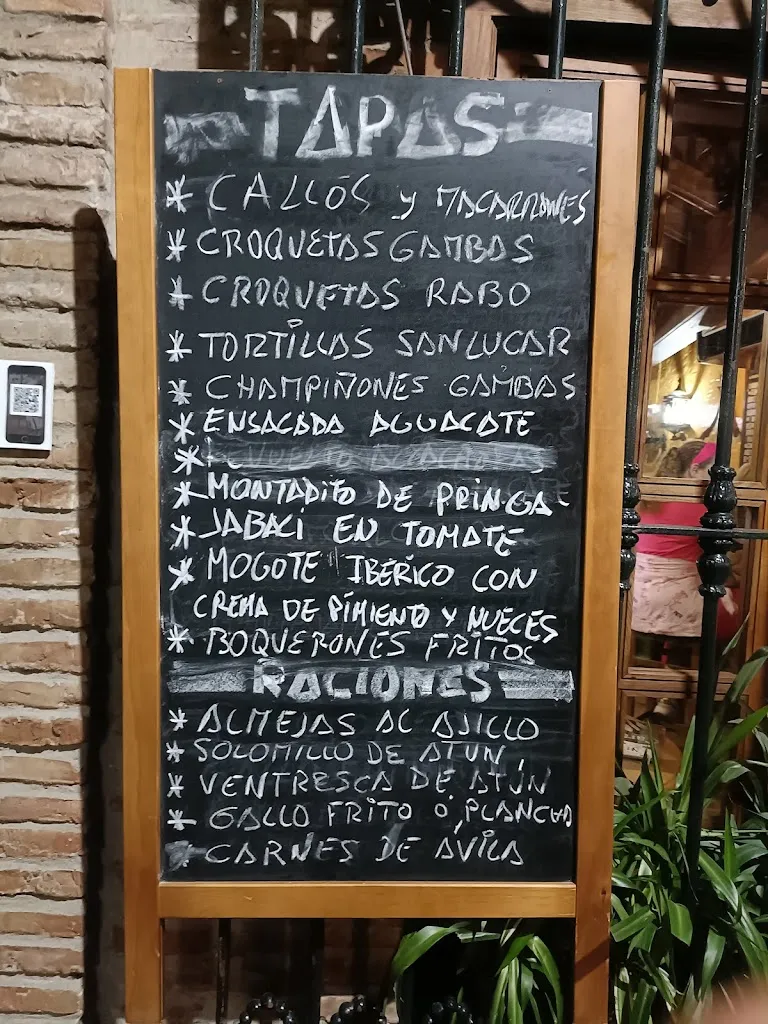 TAPAS
* CALLOS y MACARRONES
* CROQUETAS GAMBAS
* CROQUETAS RABO
* TORTILLAS SANLUCAR
* CHAMPIÑONES GAMBAS
* ENSALADA AGUACATE
*
* MONTADITO DE PRINGA
* JABALÍ EN TOMATE
* MOGOTE IBERICO CON
CREMA DE PIMIENTO Y NUECES
* BOQUERONES FRITOS
RACIONES
* ALMEJAS AL AJILLO
* SOLOMILLO DE ATUN
* VENTRESCA DE ATÚN
* GALLO FRITO Ó PLANCHA
* CARNES DE ÁVILA